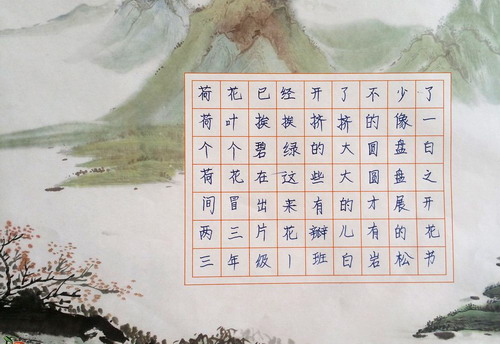 荷花已经开了不少了
荷叶挨挨挤挤的像一
个个碧绿的大圆盘白
荷花在这些大圆盘之
间冒出来有的才展开
两三片花瓣儿有的花
三年级1班白岩松书